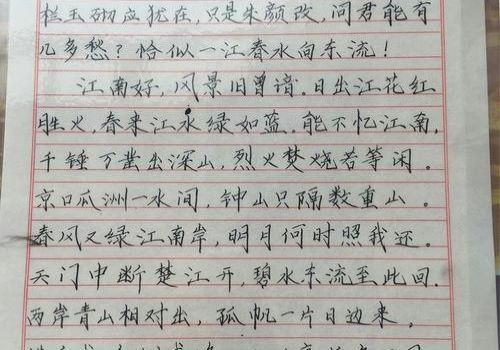 栏玉砌应犹在，只是朱颜改，问君能有
几多愁？恰似一江春水向东流！
江南好，风景旧曾谙。日出江花红
胜火，春来江水绿如蓝。能不忆江南，
千锤万凿出深山，烈火焚烧若等闲。
京口瓜洲一水间，钟山只隔数重山。
春风又绿江南岸，明月何时照我还。
天门中断楚江开，碧水东流至此回。
两岸青山相对出，孤帆一片日边来。